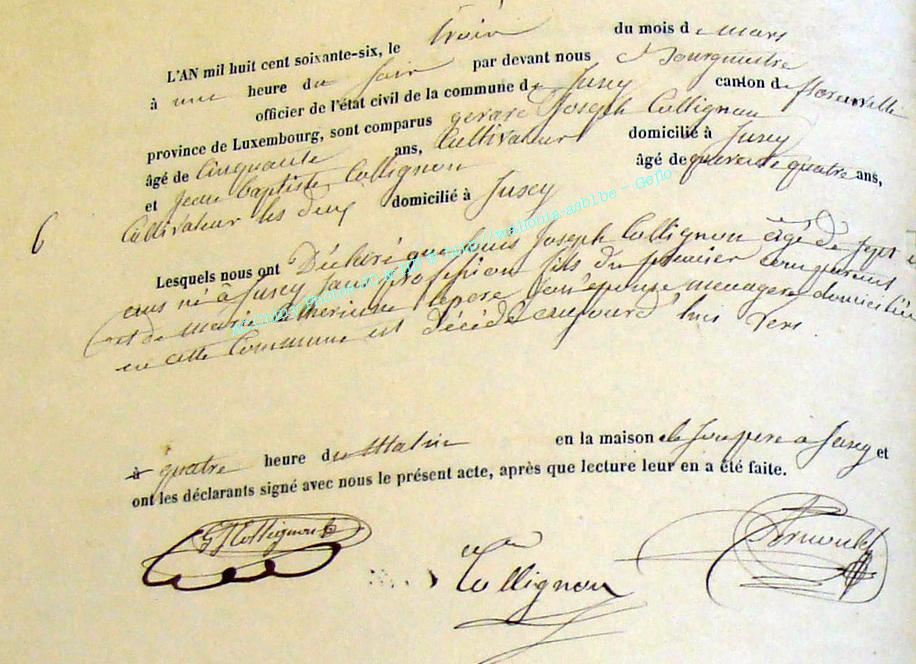 L'AN mil huit cent soixante-six, le trois du mois de mars
à une heure du soir par devant nous Bourgmestre
officier de l'état civil de la commune de Jusey canton de florenville
province de Luxembourg, sont comparus gerard Joseph Collignon
âgé de Cinquante ans, Cultivateur domicilié à Jusey
et Jean baptiste Collignon âgé de quarante quatre ans,
Cultivateur les deux domicilié à Jusey
6
Lesquels nous ont Déclaré que louis Joseph Collignon âgé de sept
ans né à Jusey sans profession fils du premier comparant
et de Marie Catherinne lepere son épouse menagere domiciliée
en cette Commune est décédé aujourd'hui vers
à quatre heure du Matin en la maison de son pere a Jusey et
ont les déclarants signé avec nous le présent acte, après que lecture leur en a été faite.
GJCollignon
Collignon